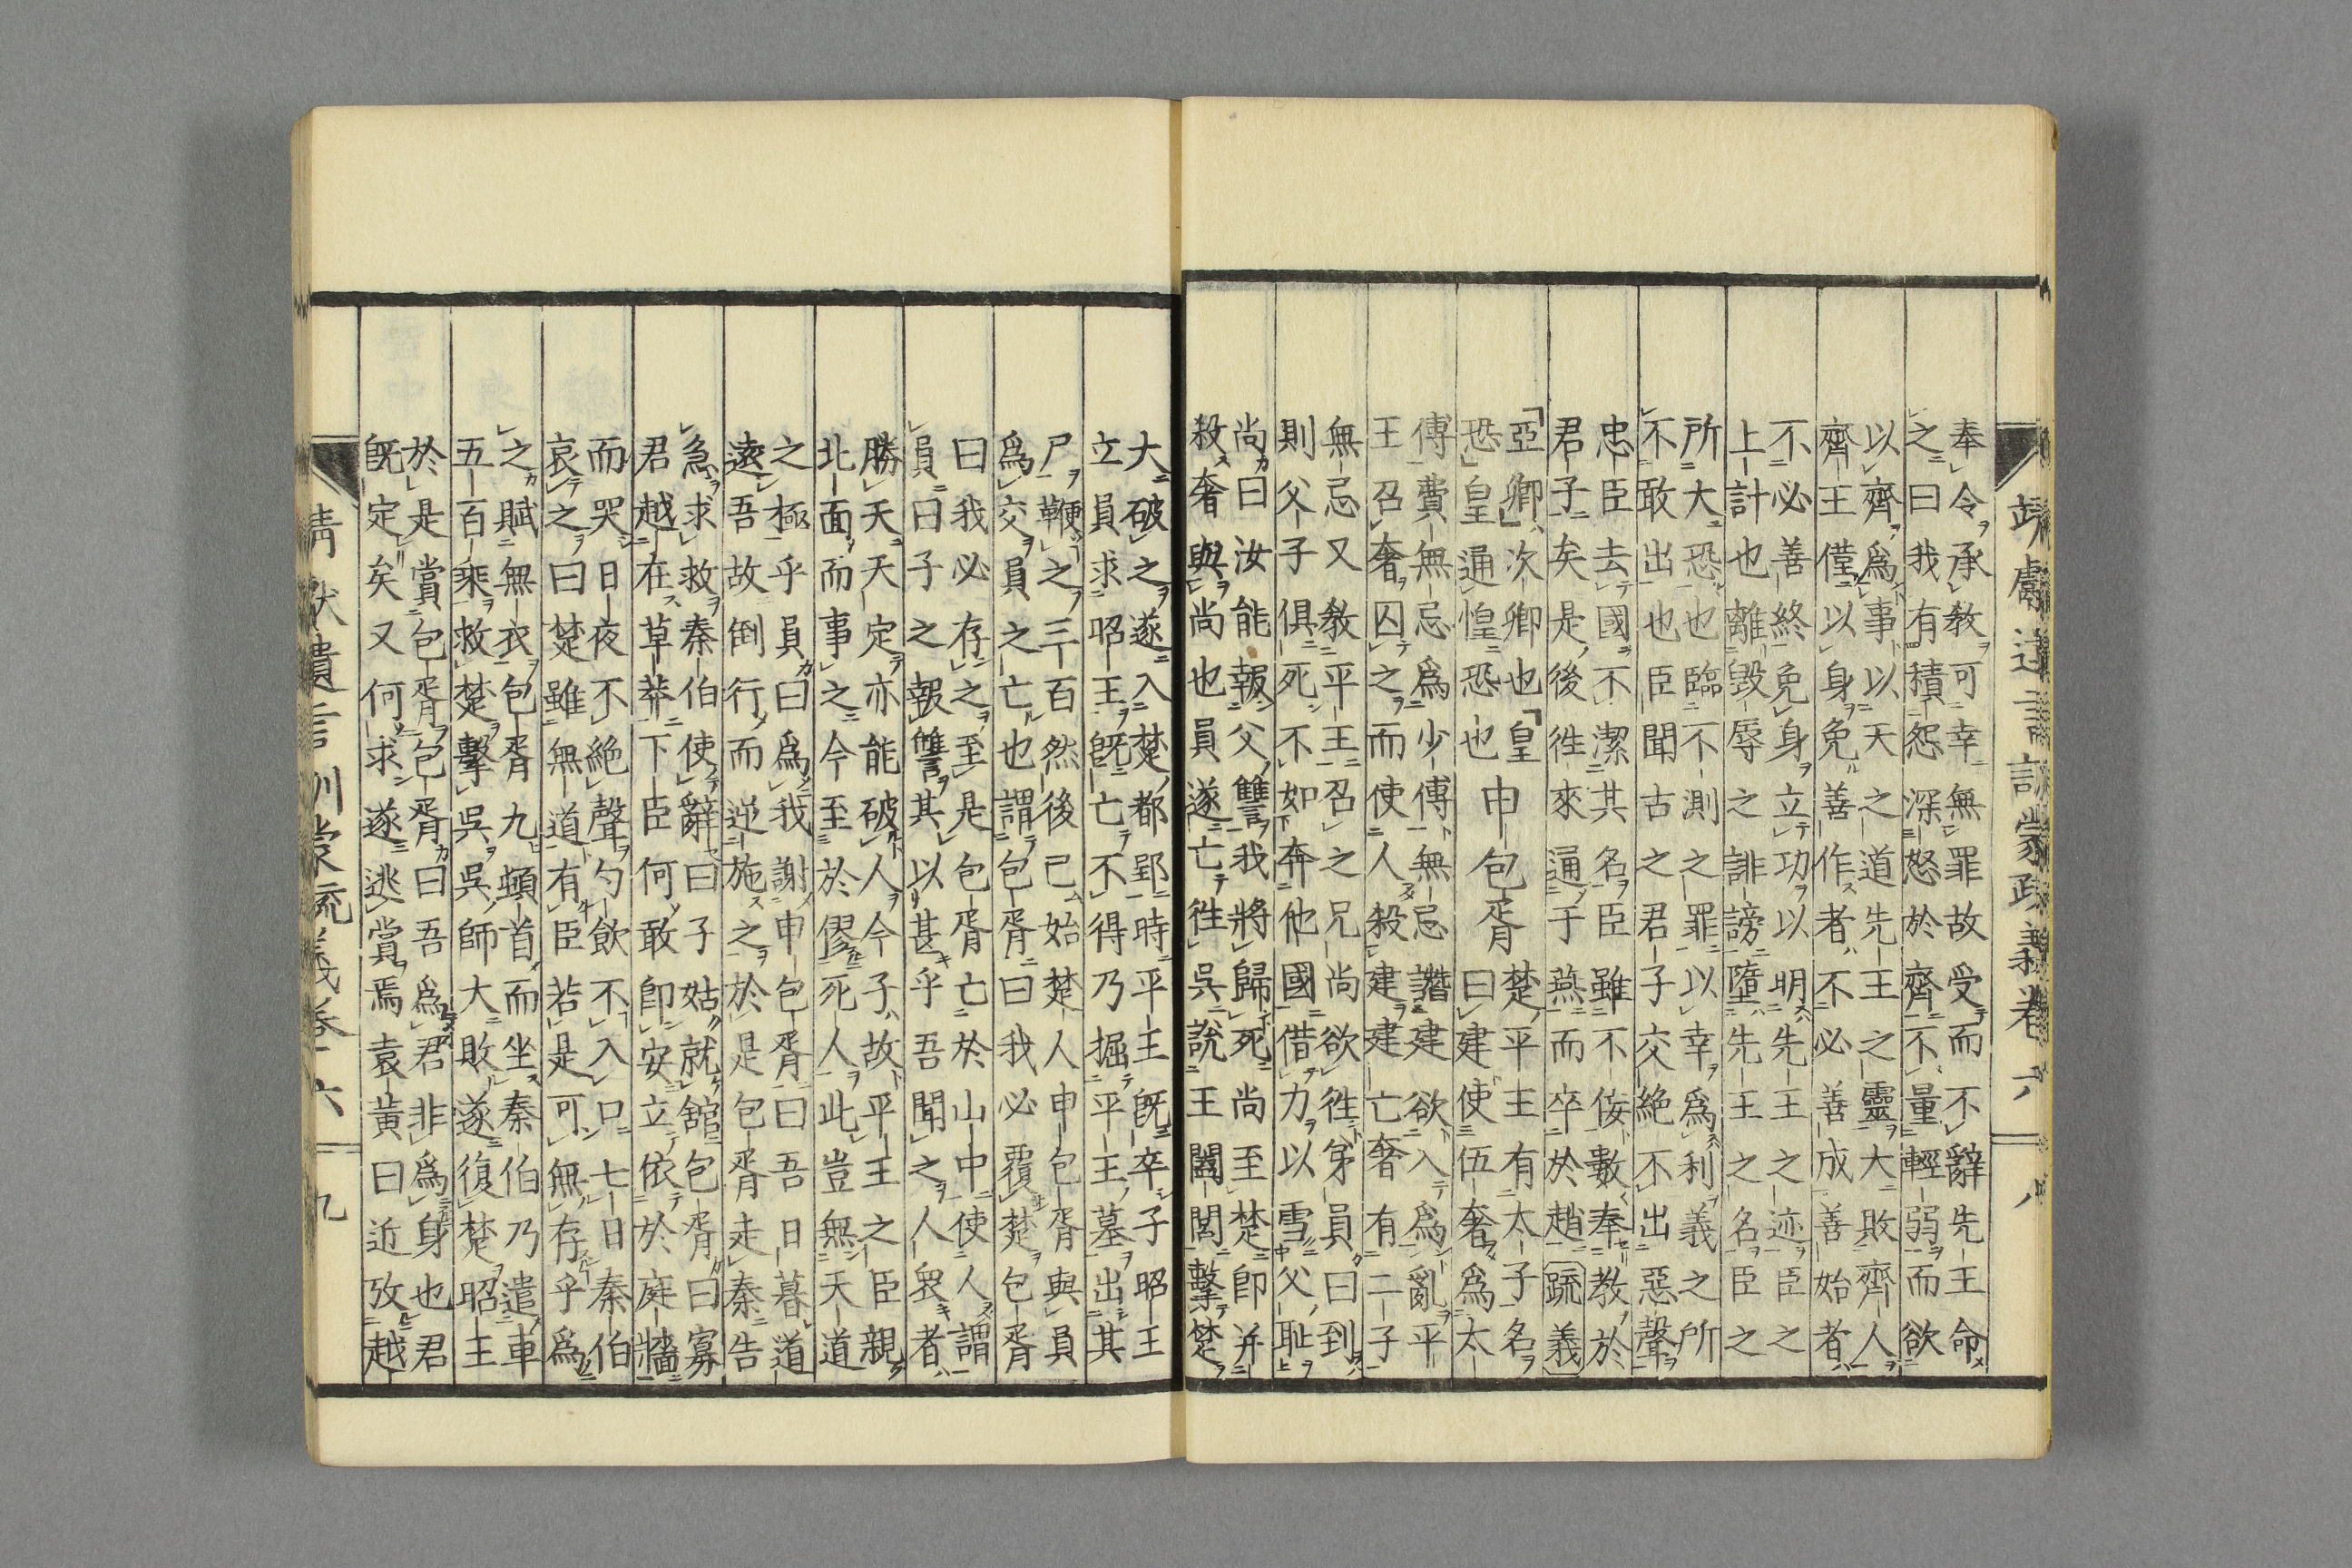 靖獻遺言訓蒙疏義卷六 八
奉令承教可幸無罪故受而不辭先王命
之曰我有積怨深怒於齊不量輕弱而欲
以齊爲事以天之道先王之靈大敗齊人
齊王僅以身免善作者不必善成善始者
不必善終免身立功以明先王之迹臣之
上計也離毀辱之誹謗墮先王之名臣之
所大恐也臨不測之罪以幸爲利義之所
不敢出也臣聞古之君子交絶不出惡聲
忠臣去國不潔其名臣雖不佞數奉教於
君子矣是後徃來通于燕而卒於趙疏義
「亞卿」次卿也「皇
恐」皇通惶恐也
申包胥
楚平主有太子名
曰建使伍奢爲太
傅費無忌爲少傅無忌譖建欲入爲亂平
王召奢囚之而使人殺建建亡奢有二子
無忌又教平王召之兄尚欲徃弟員曰到
則父子俱死不如奔他國借力以雪父耻
尚曰汝能報父讐我將歸死尚至楚卽并
殺奢與尚也員遂亡徃吳說王闔閭擊楚
大破之遂入楚都郢時平王既卒子昭王
立員求昭王既亡不得乃掘平王墓出其
尸鞭之三百然後已始楚人申包胥與員
爲交員之亡也謂包胥曰我必覆楚包胥
曰我必存之至是包胥亡於山中使人謂
員曰子之報讐其以甚乎吾聞之人衆者
勝天天定亦能破人今子故平王之臣親
北面而事之今至於僇死人此豈無天道
之極乎員曰爲我謝申包胥曰吾日暮道
遠吾故倒行而逆施之於是包胥走秦告
急求救秦伯使辭曰子姑就舘包胥曰寡
君越在草莽下臣何敢卽安立依於庭牆
而哭日夜不絶聲勺飲不入口七日秦伯
哀之曰楚雖無道有臣若是可無存乎爲
之賦無衣包胥九頓首而坐秦伯乃遣車
五百乘救楚擊吳吳師大敗遂復楚昭王
於是賞包胥包胥曰吾爲君非爲身也君
既定矣又何求遂逃賞焉袁黃曰近攷越
靖獻遺言訓蒙疏義卷六 九